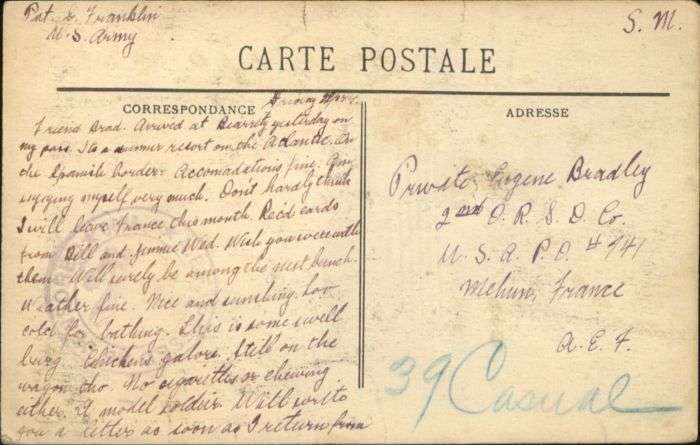 Pvt. E. Franklin
U.S. Army
S. M.
CARTE POSTALE
CORRESPONDANCE
ADRESSE
Friday
Friend Brad. Arrived at Biarritz yesterday on
my pass. Its a summer resort on the Atlantic. On
the Spanish border. Accomadations fine. Am
enjoying myself very much. Dont hardly think
I will leave France this month. Rec'd cards
from Bill and Jimmie Wed. Wish you were with
them. Will surely be among the next bunch.
Weather fine. Nice and sunshiny. Too
cold for bathing. This is some swell
burg. Chickens galore. Still on the
wagon tho. No cigarettes or chewing
either. A model soldier. Will write
you a letter as soon as I return from
Private Eugene Bradley
2nd O. R. S. D. Co.
U. S. A. P. O. # 741
Mehun, France
A. E. F.
39 Casual